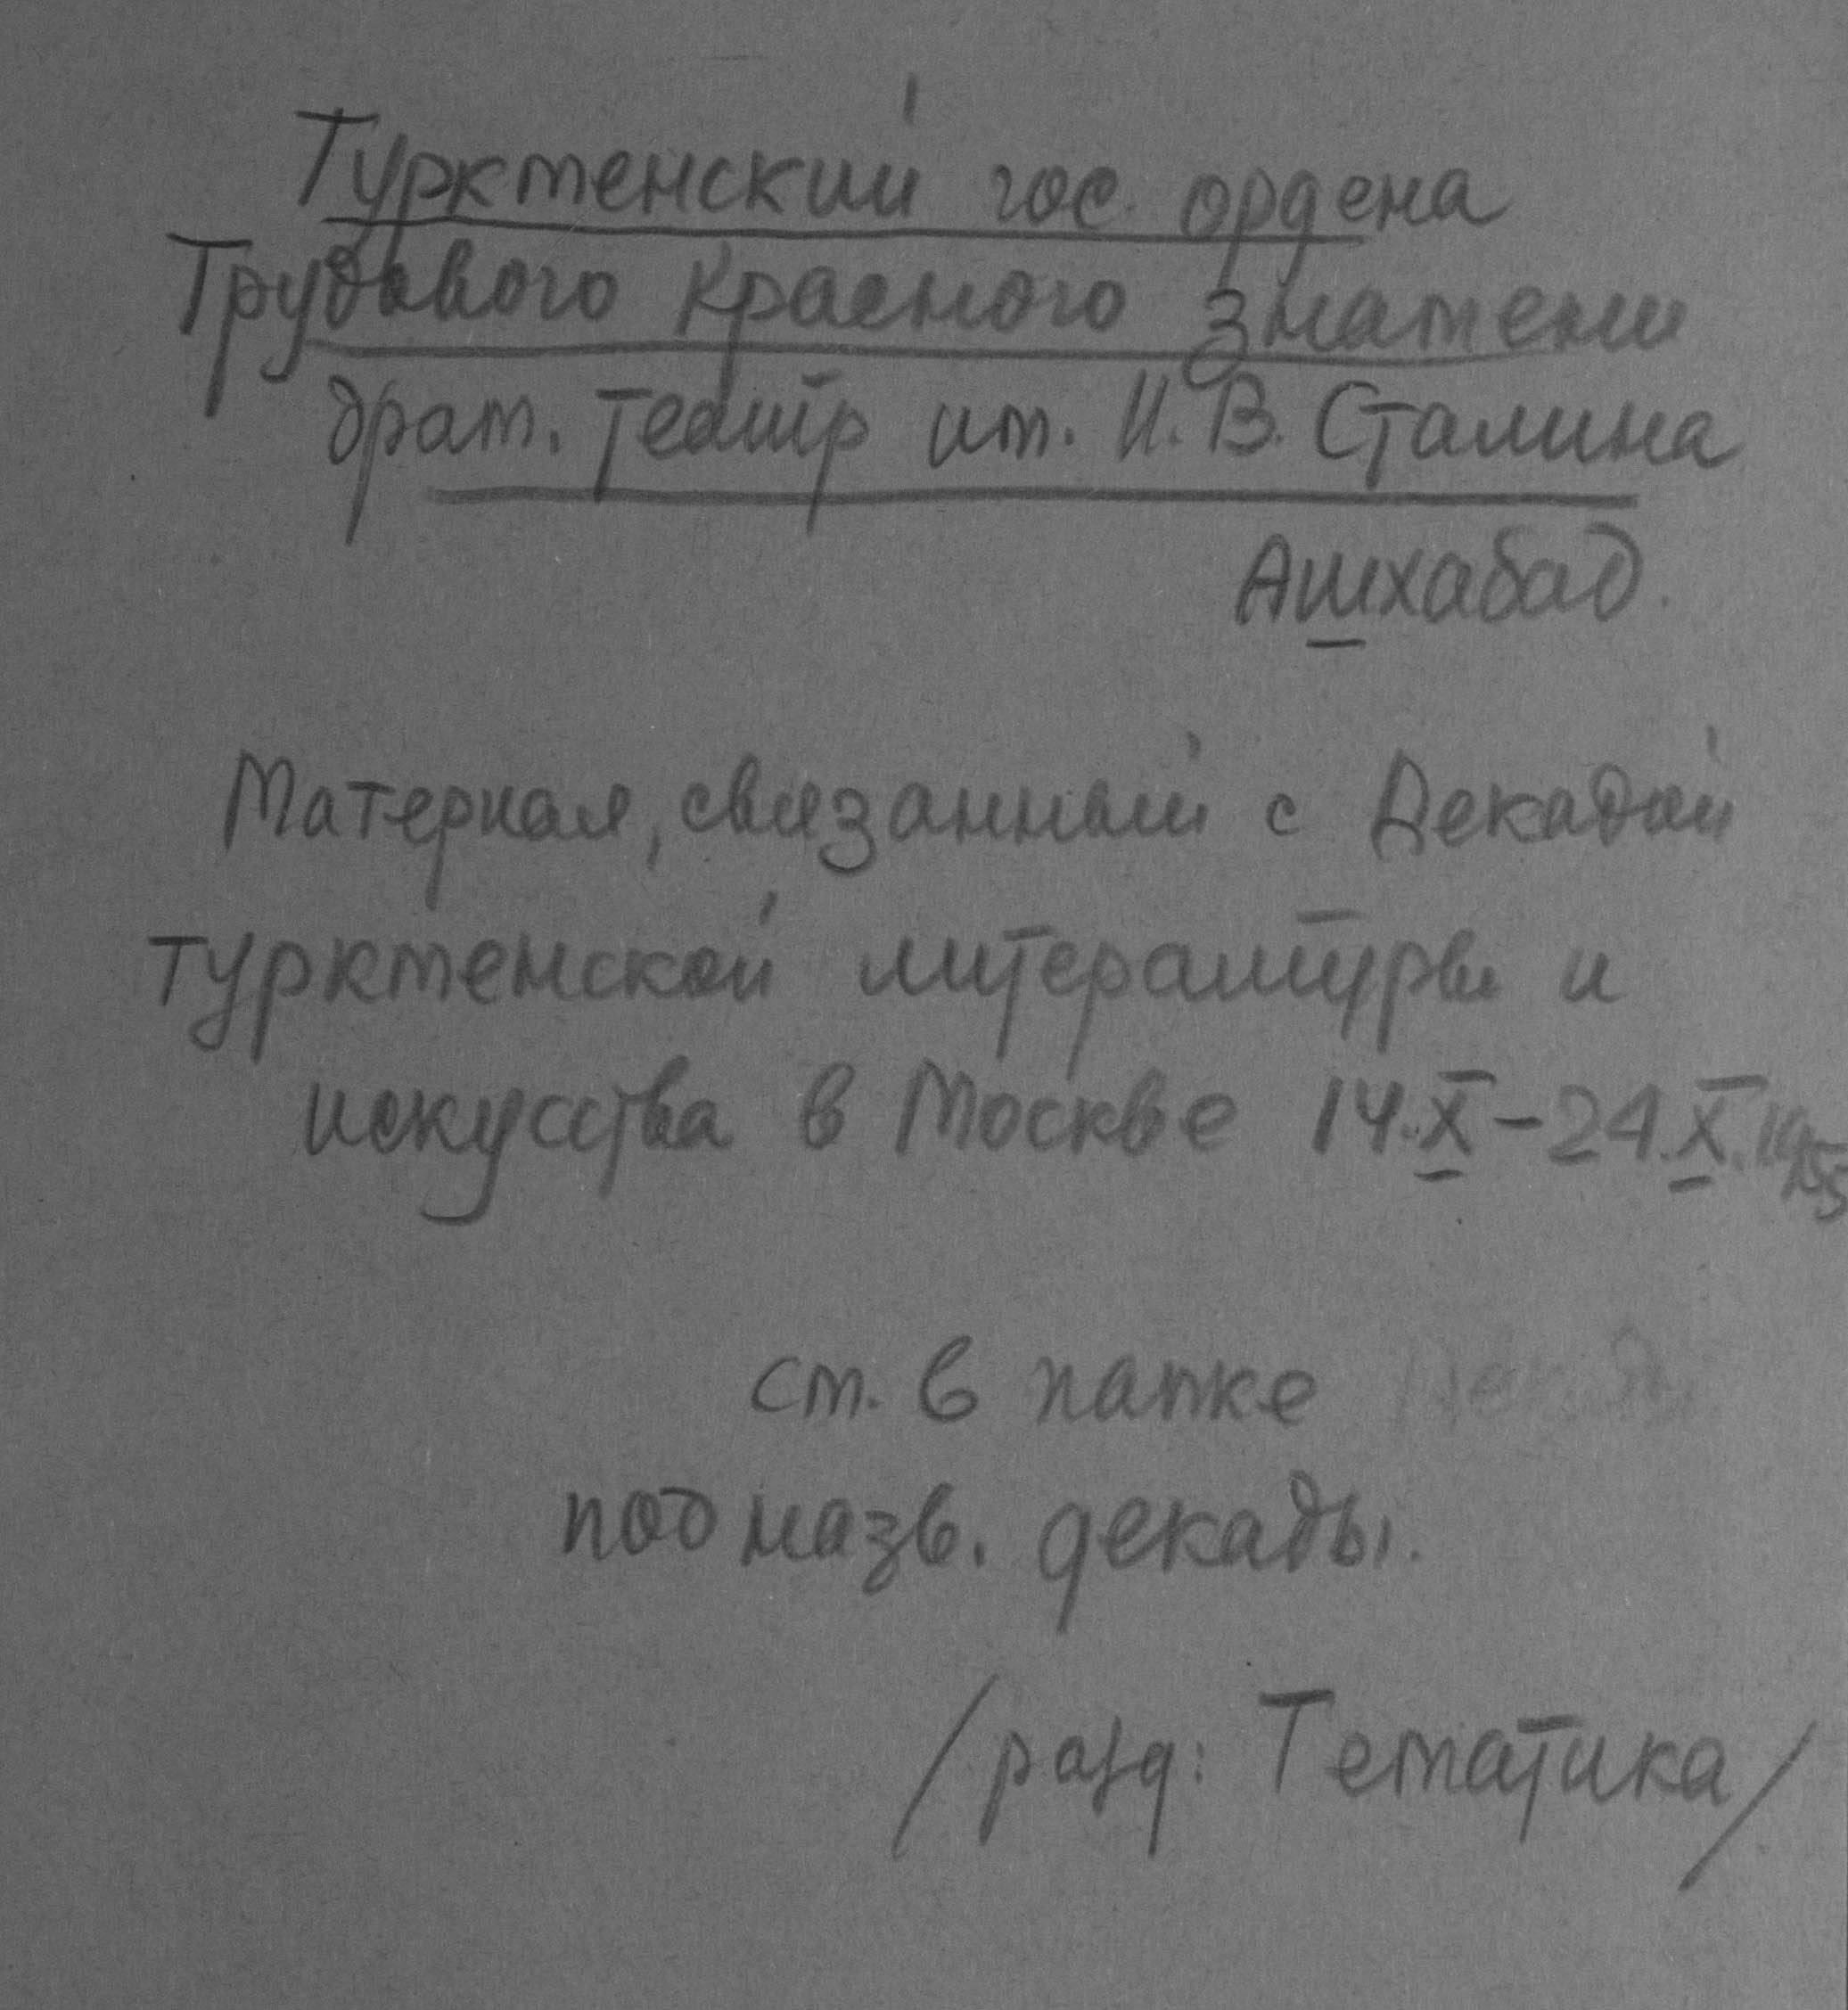 Туркменский гос. ордена
Трудового Красного знамени
драм. театр им. И. В. Сталина
Ашхабад.
Материал, связанный с Декадой
туркменской литературы и
искусства в Москве 14.X-24.X.1955
см. в папке
под назв. декады.
/разд: Тематика/